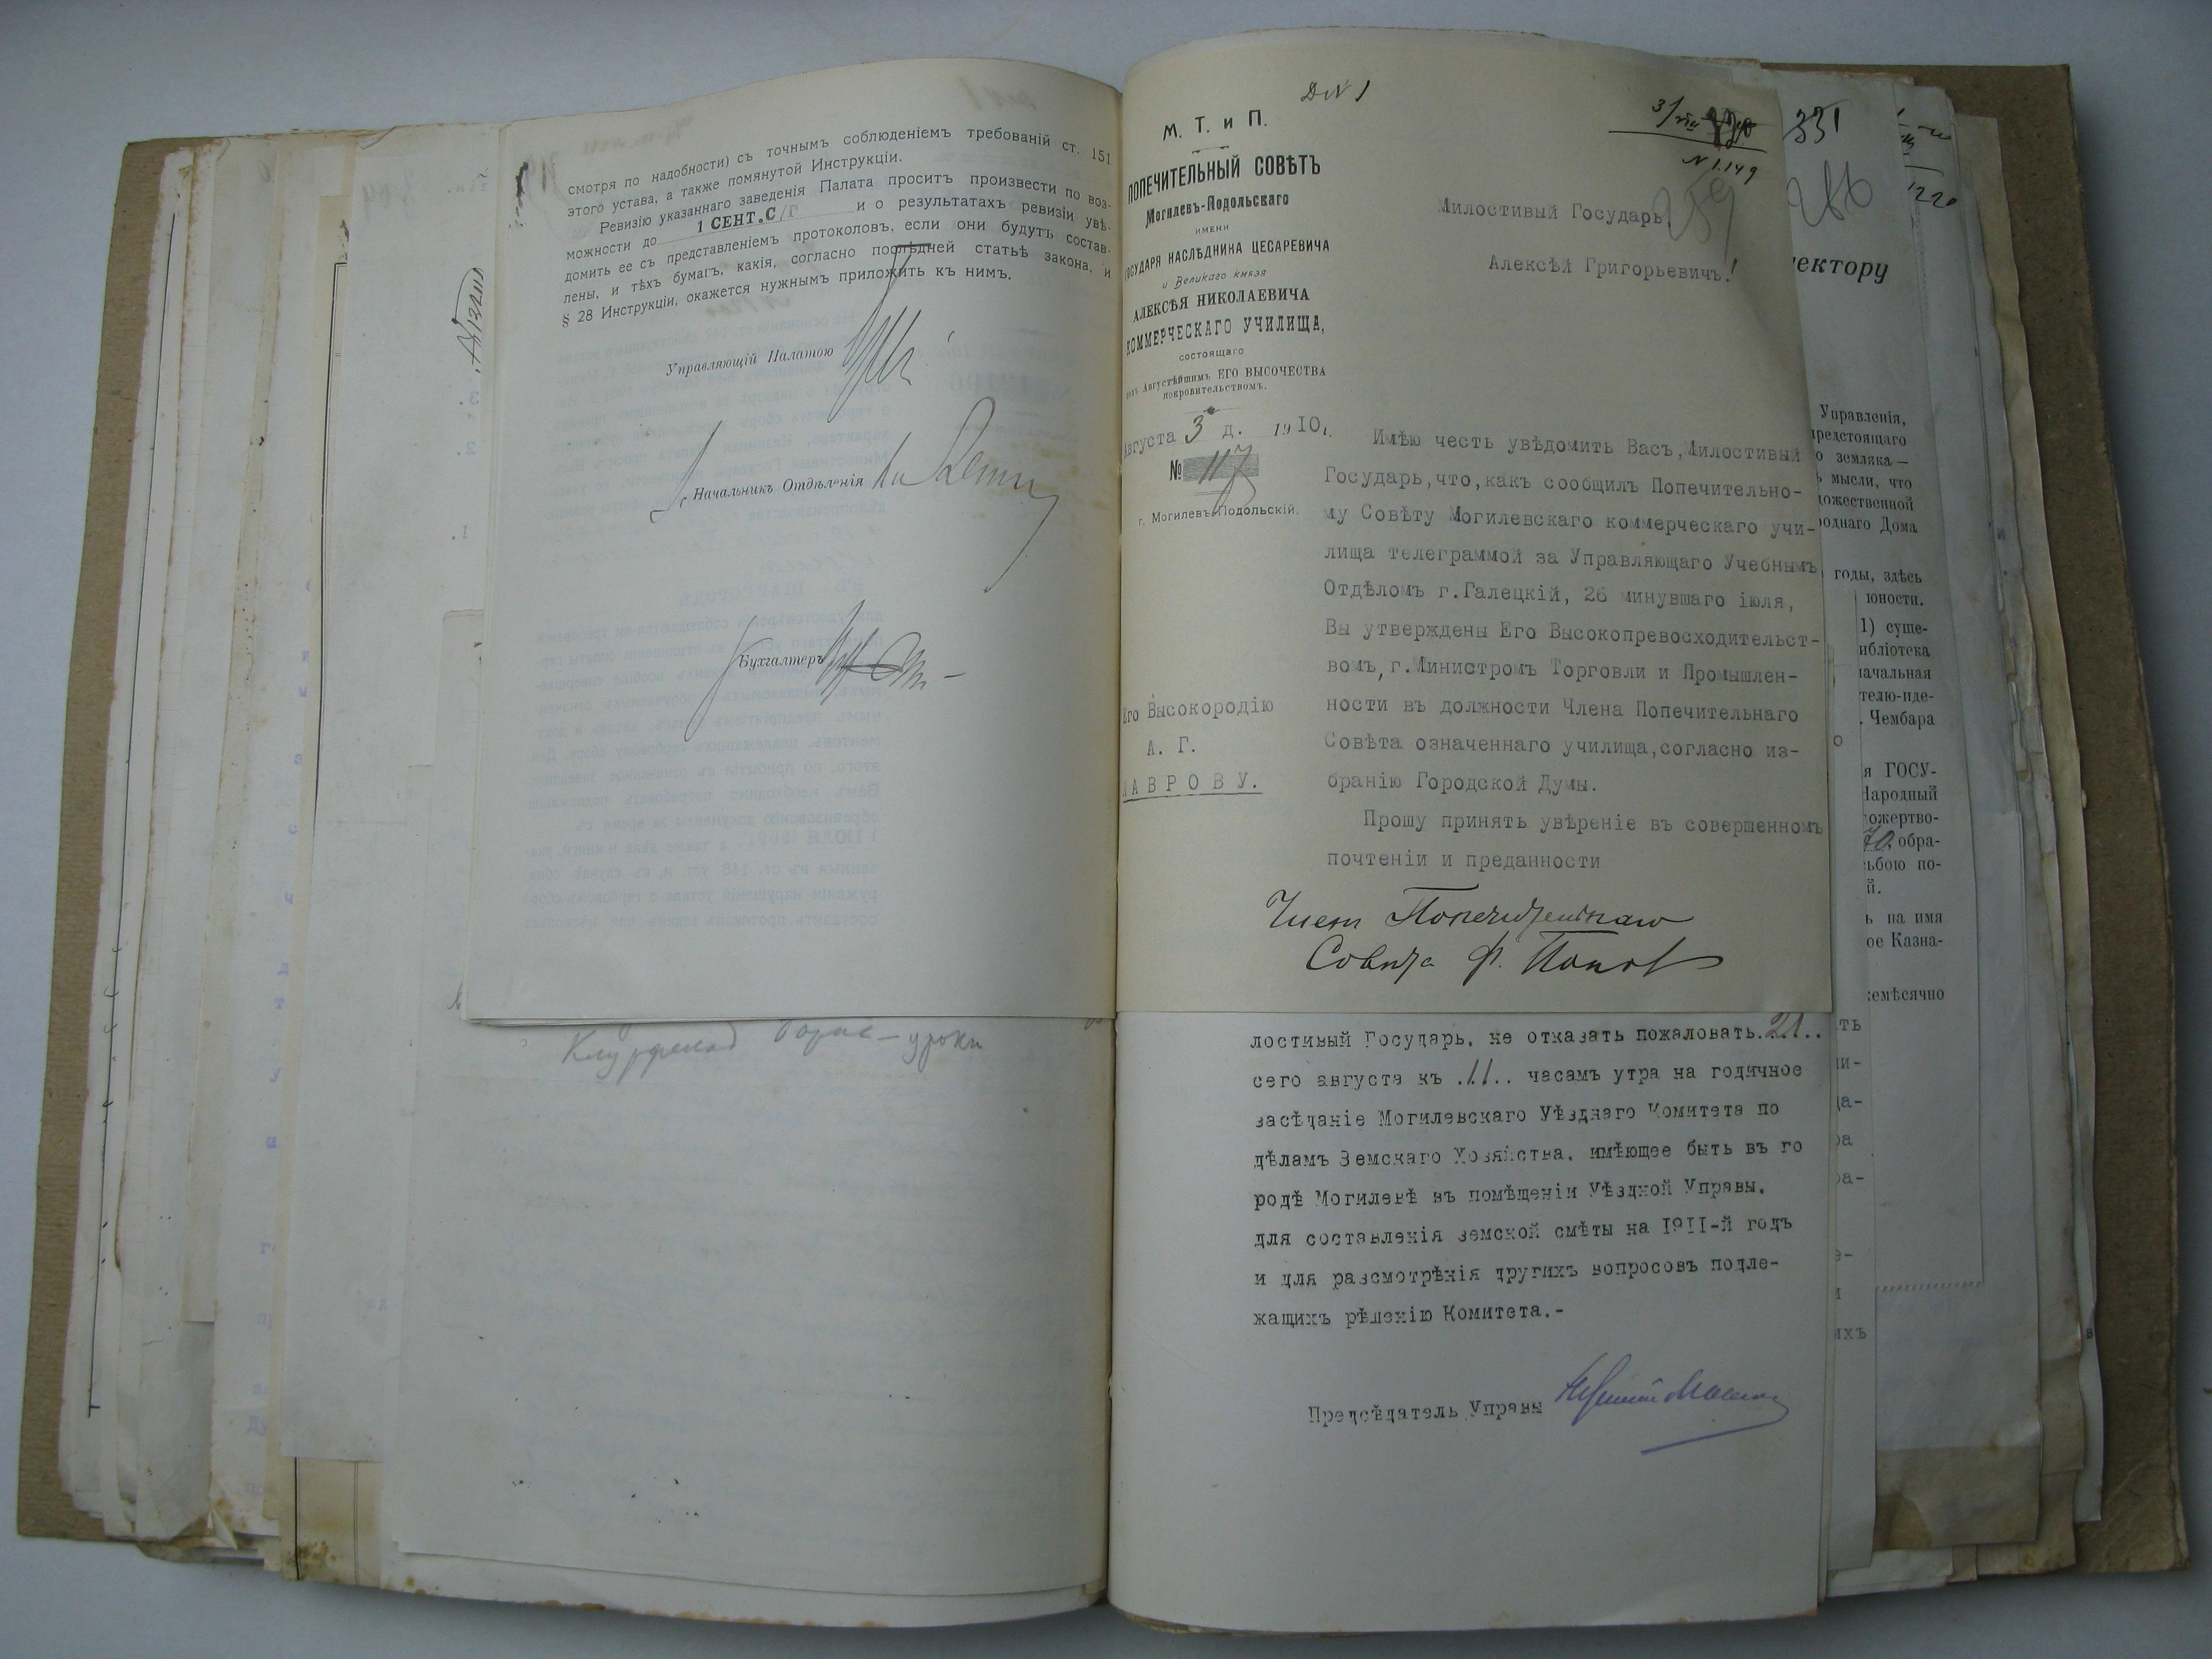 смотря по надобности) съ точнымъ соблюденіемъ требованій ст. 151
этого устава, а также помянутой Инструкціи.
Ревизію указаннаго заведенія Палата проситъ произвести по воз-
можности до 1 СЕНТ. С/Г и о результатахъ ревизіи увѣ-
домить ее съ представленіемъ протоколовъ, если они будутъ состав-
лены, и тѣхъ бумагъ, какія, согласно послѣдней статьѣ закона, и
§ 28 Инструкціи, окажется нужнымъ приложить къ нимъ.
Управляющій Палатою
Начальникъ Отдѣленія
Бухгалтеръ
уроки
Д N 1
М. Т. и П.
ПОПЕЧИТЕЛЬНЫЙ СОВѢТЪ
Могилевъ-Подольскаго
ИМЕНИ
ГОСУДАРЯ НАСЛѢДНИКА ЦЕСАРЕВИЧА
и Великаго князя
АЛЕКСѢЯ НИКОЛАЕВИЧА
КОММЕРЧЕСКАГО УЧИЛИЩА,
состоящаго
подъ Августѣйшимъ ЕГО ВЫСОЧЕСТВА
покровительствомъ.
Августа 3 д. 1910 г.
№ 117
г. Могилевъ-Подольскій.
Его Высокородію
А. Г.
ЛАВРОВУ.
3/VIII
N 1.149
259
Милостивый Государь,
Алексѣй Григорьевичъ!
Имѣю честь увѣдомить Васъ, Милостивый
Государь, что, какъ сообщилъ Попечительно-
му Совѣту Могилевскаго коммерческаго учи-
лища телеграммой за Управляющаго Учебнымъ
Отдѣломъ г. Галецкій, 26 минувшаго іюля,
Вы утверждены Его Высокопревосходительст-
вомъ, г. Министромъ Торговли и Промышлен-
ности въ должности Члена Попечительнаго
Совѣта означеннаго училища, согласно из-
бранію Городской Думы.
Прошу принять увѣреніе въ совершенномъ
почтеніи и преданности
Членъ Попечительнаго
Совѣта Ф. Попов
лостивый Государь, не отказать пожаловать. 21..
сего августа къ .11.. часамъ утра на годичное
засѣданіе Могилевскаго Уѣзднаго Комитета по
дѣламъ Земскаго Хозяйства, имѣющее быть въ го
родѣ Могилевѣ въ помѣщеніи Уѣздной Управы,
для составленія земской смѣты на 1911-й годъ
и для разсмотрѣнія другихъ вопросовъ подле-
жащихъ рѣшенію Комитета.-
Предсѣдатель Управы
331
286
1220
ектору
Управленія,
редстоящаго
о земляка —
ь мысли, что
ожественной
роднаго Дома
годы, здѣсь
юности.
1) суще-
ибліотека
начальная
телю-иде-
. Чембара
я ГОСУ-
Народный
ожертво-
70. обра-
ьбою по-
й.
ь на имя
ое Казна-
емѣсячно